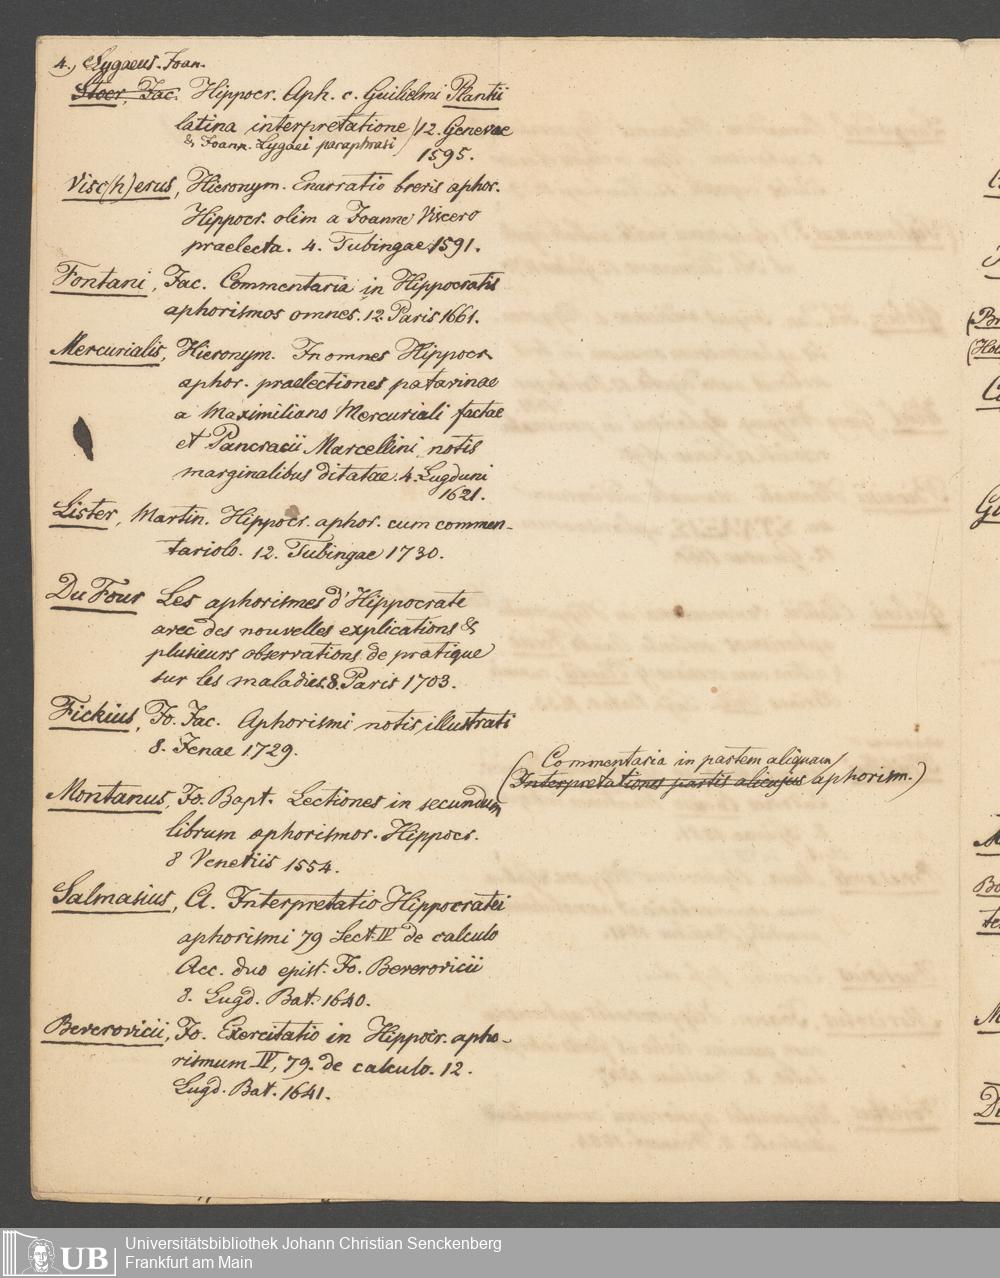 4., Lygaeus. Joan.
Stoer, Jac. Hippocr. Aph. c. Guilielmi Plantii
latina interpretatione 12. Genevae
& Joann. Lygaei paraphrasi
1595.
Visc(h)erus, Hieronym. Enarratio brevis aphor.
Hippocr. olim a Joanne Viscero
praelecta. 4. Tubingae 1591.
Fontani, Jac. Commentaria in Hippocratis
aphorismos omnes. 12. Paris 1661.
Mercurialis, Hieronym. In omnes Hippocr.
aphor. praelectiones patavinae
a Maximiliano Mercuriali factae
et Pancracii Marcellini notis
marginalibus ditatae. 4. Lugduni
1621.
Lister, Martin. Hippocr. aphor. cum commen-
tariolo. 12. Tubingae 1730.
Du Four Les aphorismes d'Hippocrate
avec des nouvelles explications &
plusieurs observations de pratique
sur les maladies. 8. Paris 1703.
Fickius, Jo. Jac. Aphorismi notis illustrati
8. Jenae 1729.
Commentaria in partem aliquam
(Interpretationes partis alicujus aphorism.)
Montanus, Jo. Bapt. Lectiones in secundum
librum aphorismor. Hippocr.
8 Venetiis 1554.
Salmasius, Cl. Interpretatio Hippocratei
aphorismi 79 Sect. IV de calculo
Acc. duo epist. Jo. Beverovicii
8. Lugd. Bat. 1640.
Beverovicii, Jo. Exercitatio in Hippocr. apho-
rismum IV, 79. de calculo. 12.
Lugd. Bat. 1641.
UB
Universitätsbibliothek Johann Christian Senckenberg
Frankfurt am Main